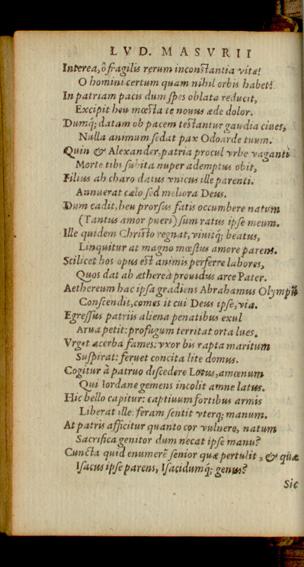 LVD. MASVRII
Interea, ô fragilis rerum inconstantia vitæ!
O homini certum quam nihil orbis habet!
In patriam pacis dum spes oblata reducit,
Excipit heu mœsta te nouus æde dolor.
Dumq; datam ob pacem testantur gaudia ciues,
Nulla animum sedat pax Odoarde tuum.
Quin & Alexander, patria procul vrbe vaganti
Morte tibi subita nuper ademptus obit,
Filius ah charo datus vnicus ille parenti.
Annuerat cælo sed meliora Deus.
Dum cadit, heu prorsus fatis occumbere natum
(Tantus amor pueri) sum ratus ipse meum.
Ille quidem Christo regnat, viuitq; beatus,
Linquitur at magno mœstus amore parens.
Scilicet hos opus est animis perferre labores,
Quos dat ab ætherea prouidus arce Pater.
Aethereum hac ipsa gradiens Abrahamus Olympũ
Conscendit, comes it cui Deus ipse, via.
Egressus patriis aliena penatibus exul
Arua petit: profugum territat orta lues.
Vrget acerba fames: vxor bis rapta maritum
Suspirat: feruet concita lite domus.
Cogitur à patruo discedere Lotus, amœnum
Qui Iordane gemens incolit amne latus.
Hic bello capitur: captiuum fortibus armis
Liberat ille: feram sentit vterq; manum.
At patris afficitur quanto cor vulnere, natum
Sacrifica genitor dum necat ipse manu?
Cuncta quid enumerē senior quæ pertulit, & quæ
Isacus ipse parens, Isacidumq; genus?
Sic